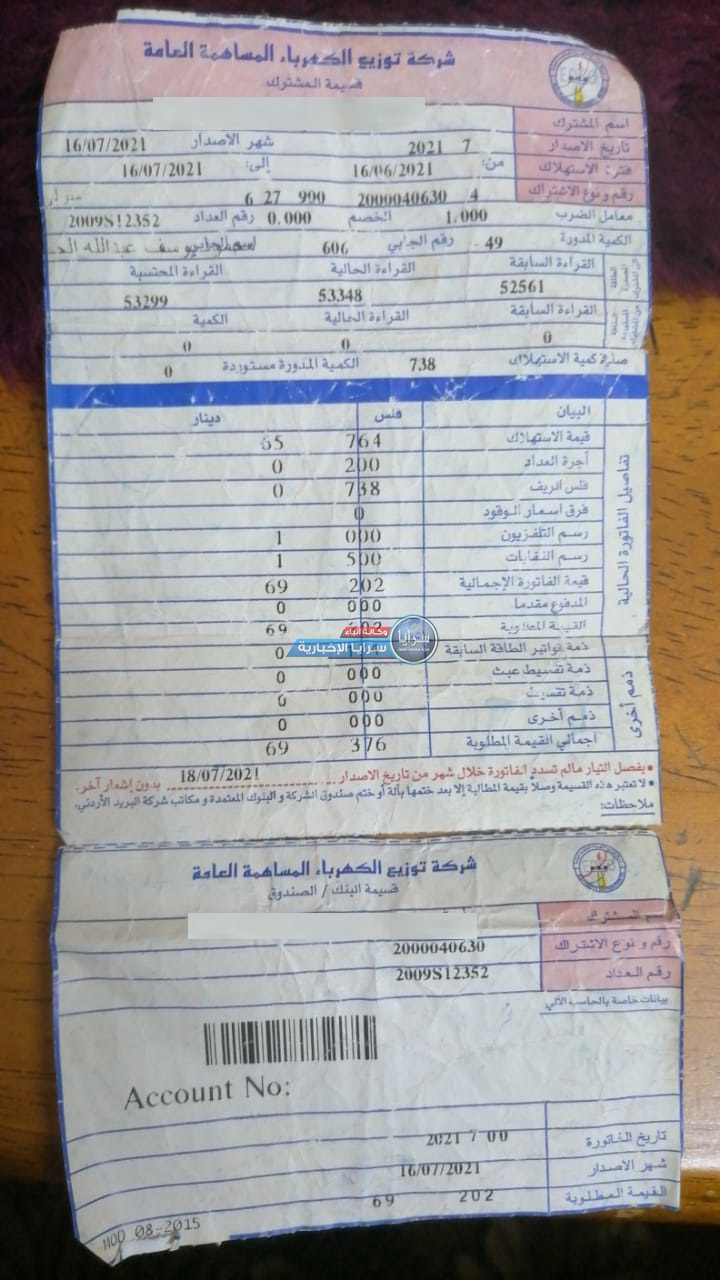 شركة توزيع الكهرباء المساهمة العامة
قسيمة المشترك
اسم المشترك
تاريخ الاصدار 7 2021 شهر الاصدار 16/07/2021
فترة الاستهلاك من: 16/06/2021 إلى: 16/07/2021
رقم و نوع الاشتراك 4 2000040630 900 27 6
معامل الضرب 1.000 الخصم 0.000 رقم العداد 2009S12352
الكمية المدورة 49 رقم الجابي 606
القراءة السابقة القراءة الحالية القراءة المحتسبة
52561 53348 53299
القراءة السابقة القراءة الحالية الكمية
0 0 0
صافي كمية الاستهلاك 738 الكمية المدورة مستوردة 0
تفاصيل الفاتورة الحالية
البيان فلس دينار
قيمة الاستهلاك 764 65
أجرة العداد 200 0
فلس الريف 738 0
فرق اسعار الوقود 0
رسم التلفزيون 000 1
رسم النفايات 500 1
قيمة الفاتورة الإجمالية 202 69
المدفوع مقدما 000 0
القيمة المطلوبة 69
وكالة أنباء
سرايا الإخبارية
سرايا
ذمم أخرى
ذمة فواتير الطاقة السابقة 0
ذمة تقسيط عبث 000 0
ذمة تقسيط 000 0
ذمم أخرى 000 0
اجمالي القيمة المطلوبة 376 69
• يفصل التيار مالم تسدد الفاتورة خلال شهر من تاريخ الاصدار 18/07/2021 بدون إشعار آخر.
• لا تعتبر هذه القسيمة وصلاً بقيمة المطالبة إلا بعد ختمها بآلة أو ختم صندوق الشركة و البنوك المعتمدة و مكاتب شركة البريد الأردني.
ملاحظات:
شركة توزيع الكهرباء المساهمة العامة
قسيمة البنك / الصندوق
اسم المشترك
رقم و نوع الاشتراك 2000040630
رقم العداد 2009S12352
بيانات خاصة بالحاسب الآلي
Account No:
تاريخ الفاتورة 00 7 2021
شهر الاصدار 16/07/2021
القيمة المطلوبة 202 69
HOD 08-2015